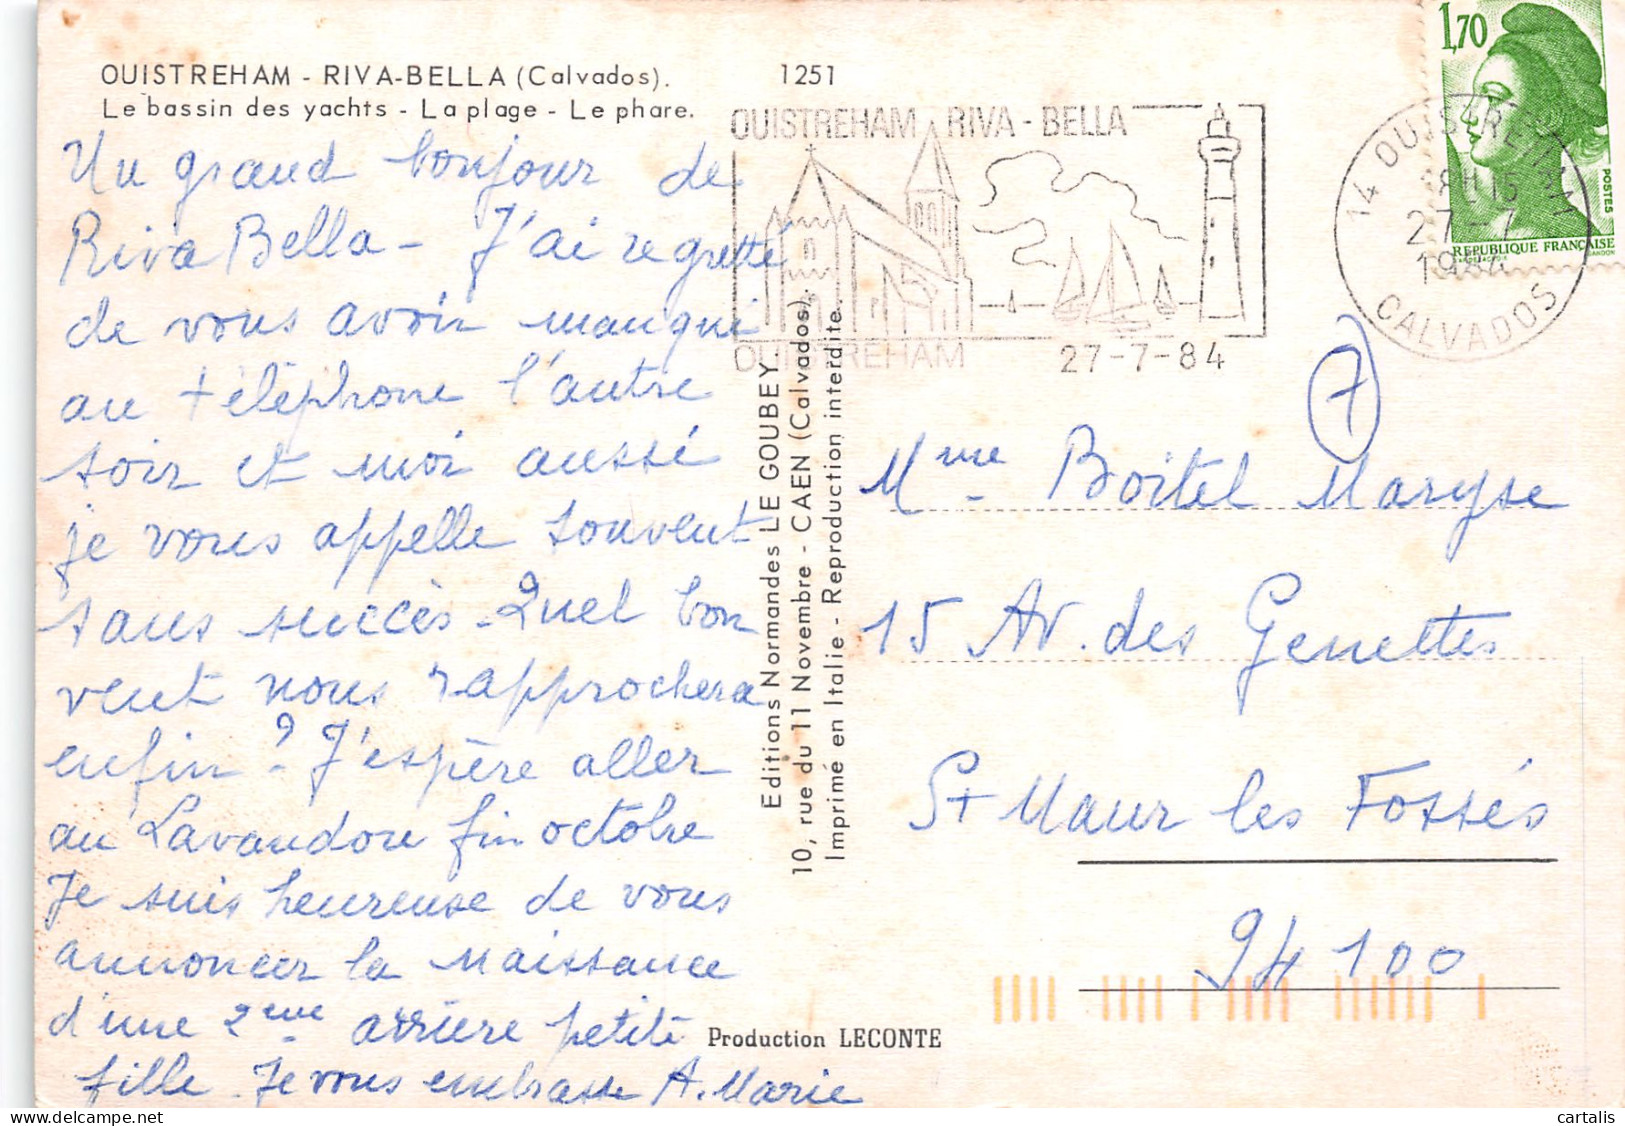 OUISTREHAM - RIVA-BELLA (Calvados).
Le bassin des yachts - La plage - Le phare.
1251
Un grand bonjour de
Riva Bella - J'ai regretté
de vous avoir manqué
au téléphone l'autre
soir et moi aussi
je vous appelle souvent
sans succès. Quel bon
vent nous rapprochera
enfin ? J'espère aller
au Lavandou fin octobre
Je suis heureuse de vous
annoncer la naissance
d'une 2ème arrière petite
fille. Je vous embrasse A. Marie
Editions Normandes LE GOUBEY
10, rue du 11 Novembre - CAEN (Calvados).
Imprimé en Italie - Reproduction interdite.
Production LECONTE
OUISTREHAM RIVA-BELLA
OUISTREHAM 27-7-84
14 OUISTREHAM
27-7
1984
CALVADOS
1,70
POSTES
REPUBLIQUE FRANÇAISE
GANDON
7
Mme Boitel Maryse
15 Av. des Genettes
St Maur les Fossés
94100
cartalis